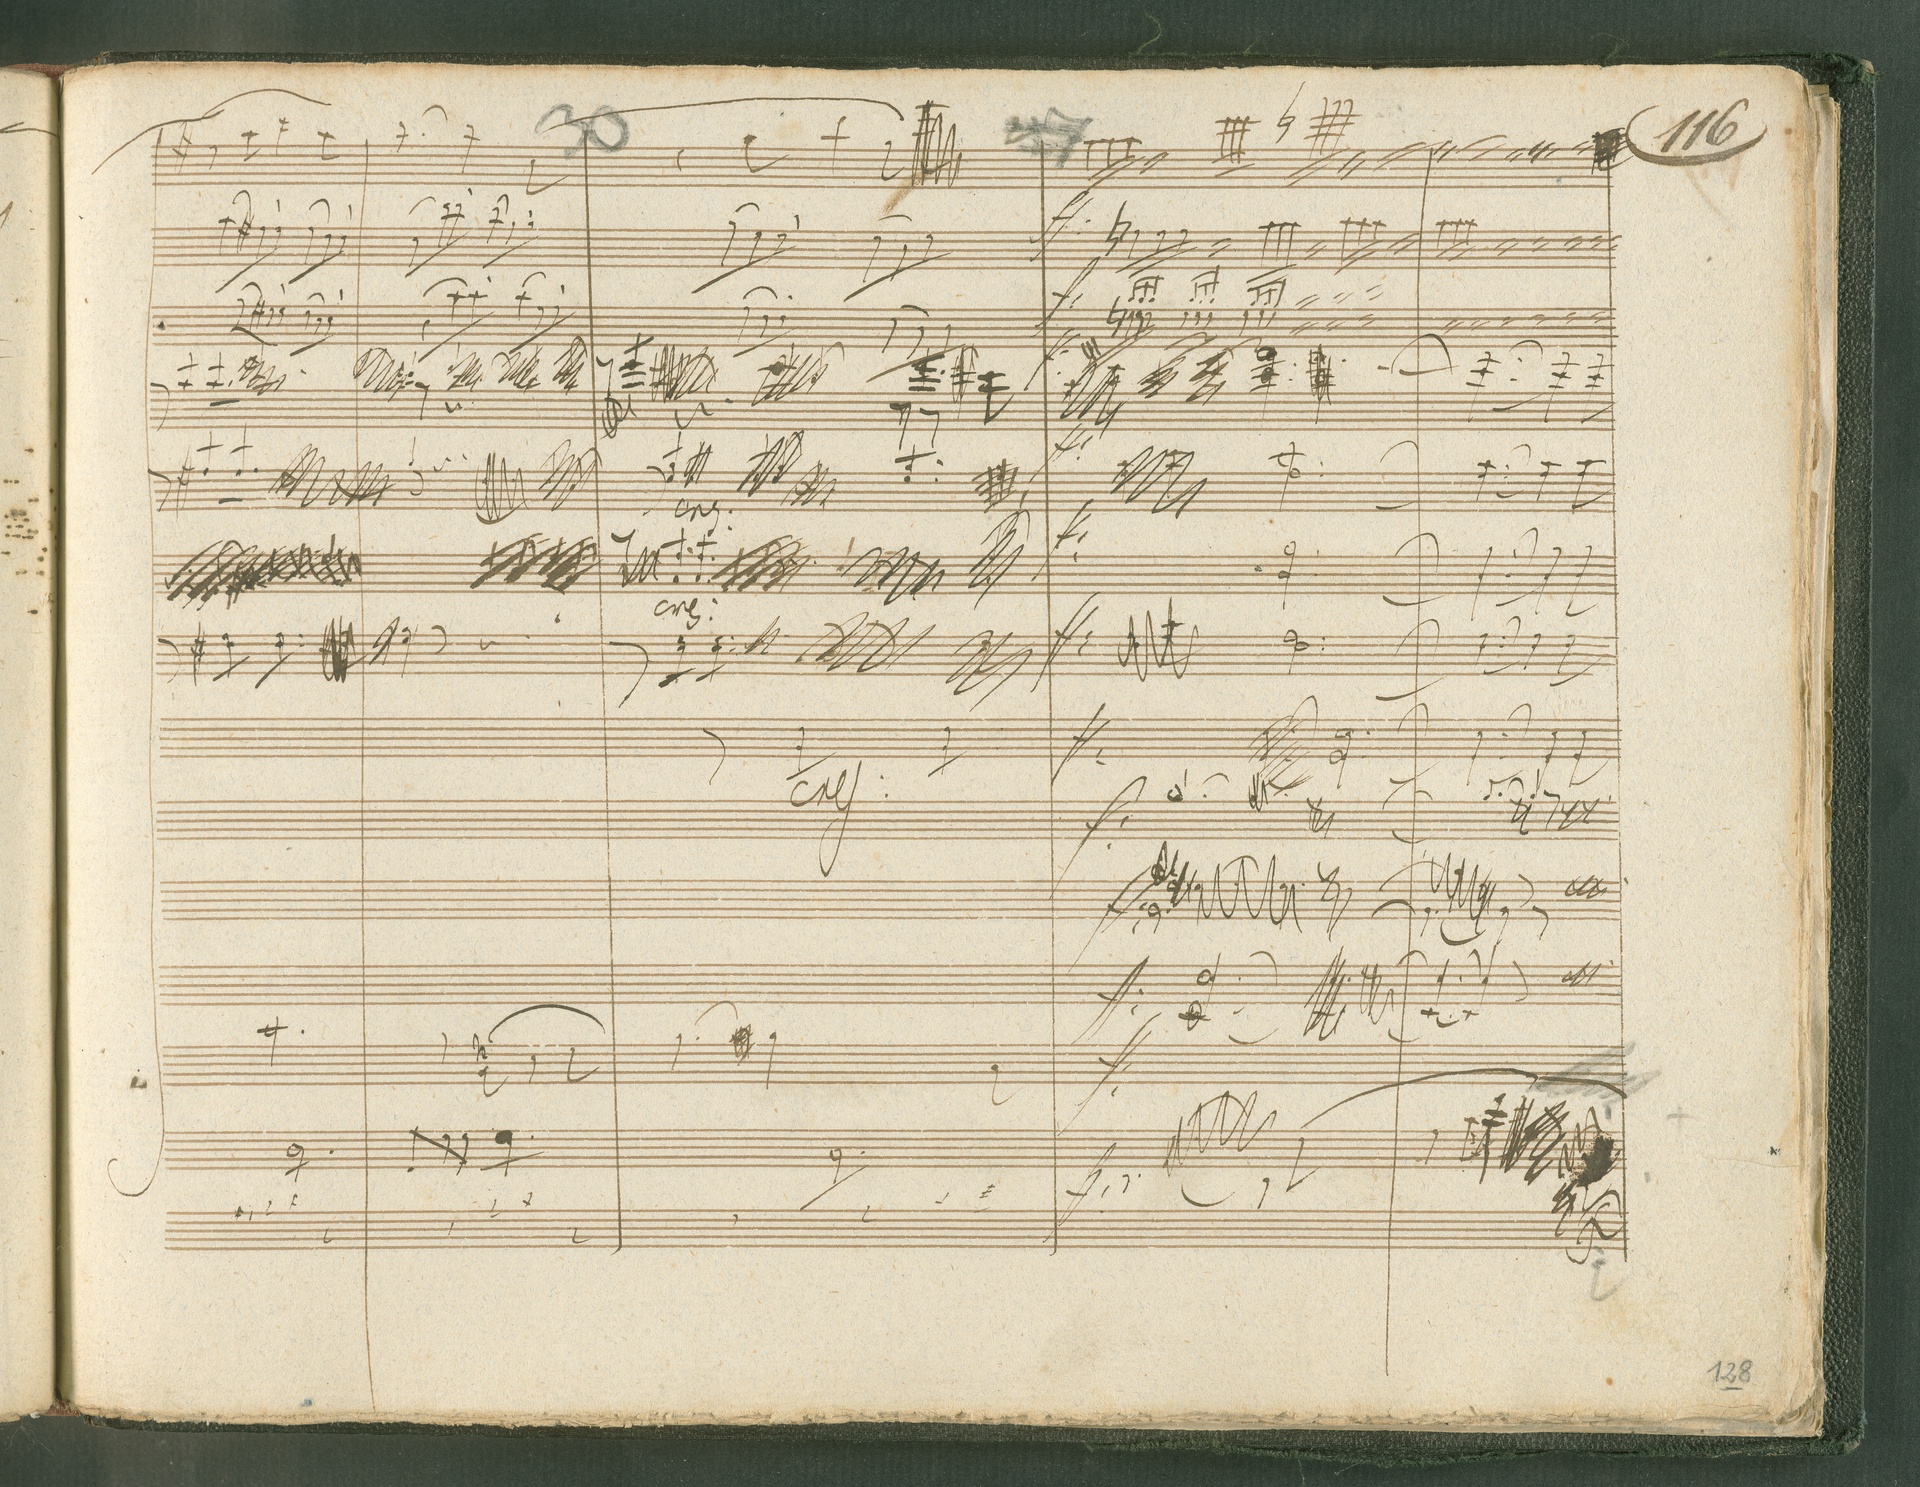 30
116
f:
f:
f:
f:
cres:
f:
cres:
f:
cres:
f:
f:
f:
f:
f:
f:
128